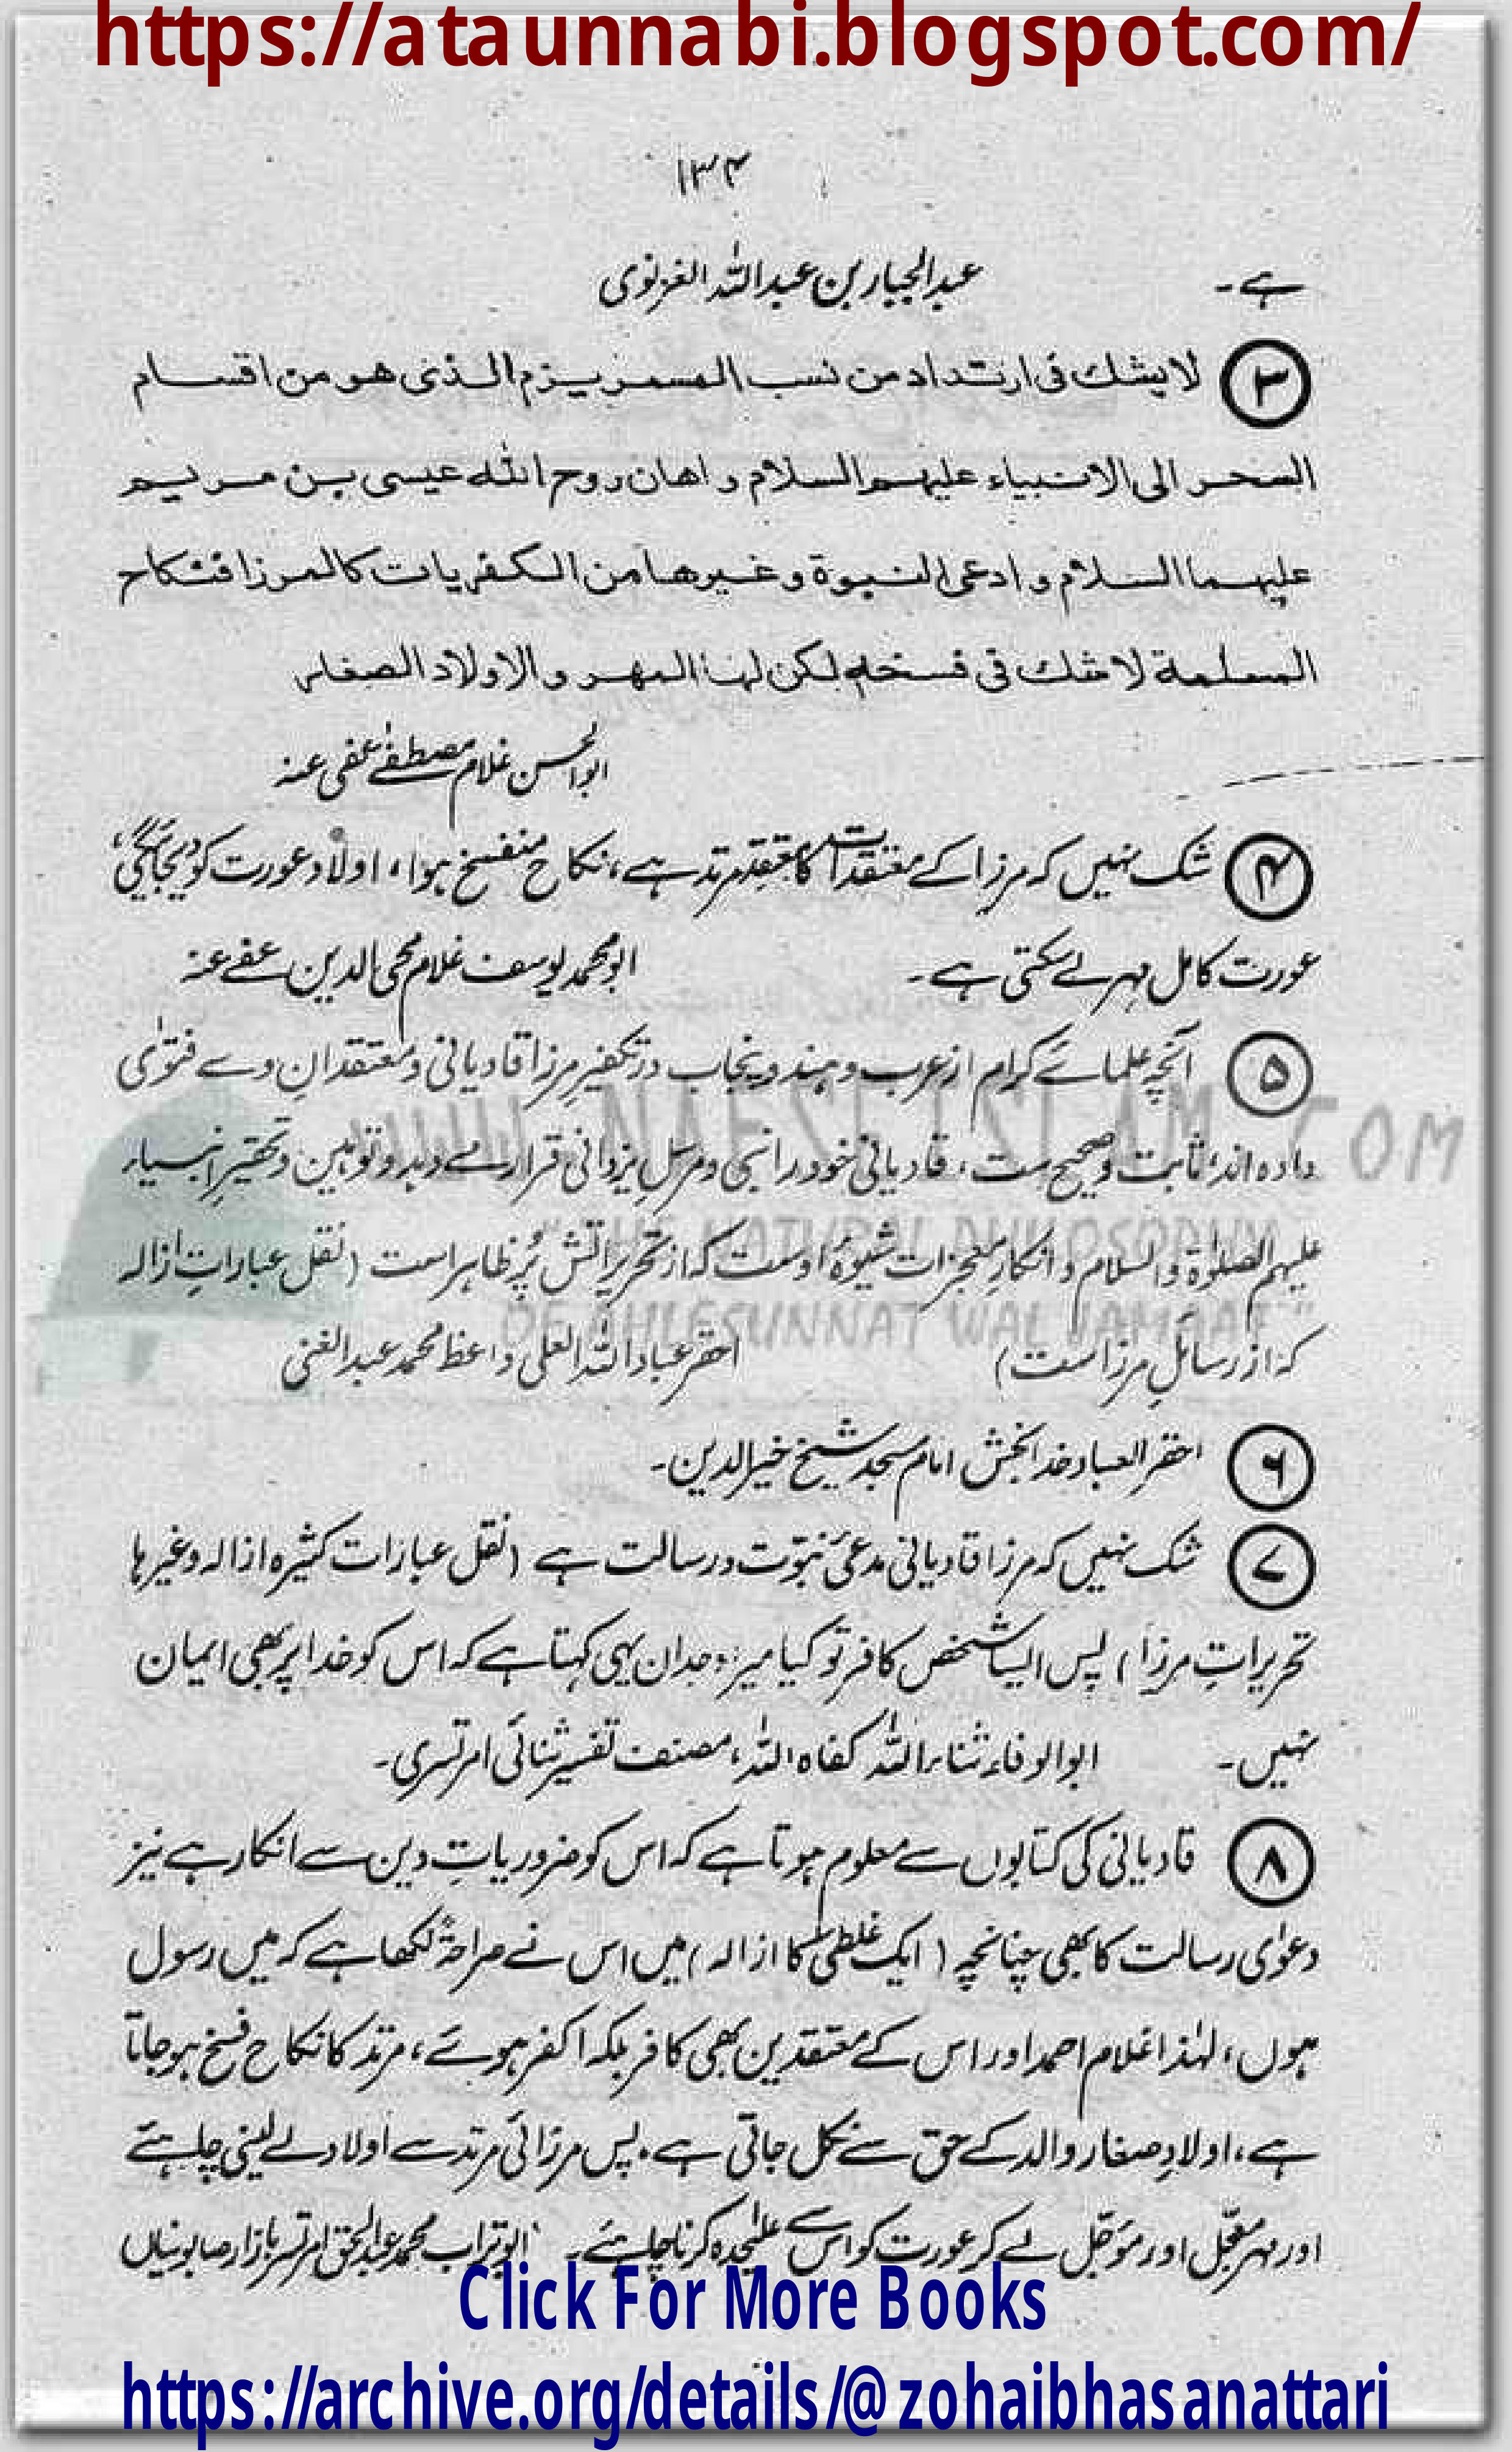 https://ataunnabi.blogspot.com/
۱۳۴
ہے۔ عبدالجبار بن عبداللہ الغزنوی
۳ لا یشك فی ارتداد من نسب المسمریزم الذی ھو من اقسام
السحر الی الانبیاء علیھم السلام و اھان روح اللہ عیسی بن مریم
علیھما السلام و ادعی النبوۃ و غیرھا من الکفریات کالمرزا فنکاح
المسلمة لا شك فی فسخه لکن لھا المھر و الاولاد الصغار
ابو الحسن غلام مصطفےٰ عفی عنہ
۴ شک نہیں کہ مرزا کے معتقدات کا معتقد مرتد ہے، نکاح منفسخ ہوا، اولاد عورت کو دی جائیگی،
عورت کامل مہر لے سکتی ہے۔ ابو محمد یوسف غلام محی الدین عفے عنہ
۵ آنچہ علمائے کرام از عرب و ہند و پنجاب در تکفیرِ مرزا قادیانی و معتقدانِ وے فتوٰی
دادہ اند ثابت و صحیح ست، قادیانی خود را نبی و مرسلِ یزدانی قرار مے دہد و توہین و تحقیرِ انبیاء
علیہم الصلوٰۃ والسلام و انکارِ معجزات شیوۂ اوست کہ از تحریراتش پُر ظاہر است (نقل عباراتِ ازالہ
کہ از رسائلِ مرزا ست) احقر عباد اللہ العلی واعظ محمد عبدالغنی
۶ احقر العباد خدا بخش امام مسجد شیخ خیر الدین۔
۷ شک نہیں کہ مرزا قادیانی مدعیِ نبوّت و رسالت ہے (نقل عبارات کثیرہ ازالہ وغیرہا
تحریراتِ مرزا) پس ایسا شخص کافر تو کیا میرا وجدان یہی کہتا ہے کہ اس کو خدا پر بھی ایمان
نہیں۔ ابوالوفاء ثناء اللہ کفاہ اللہ، مصنف تفسیر ثنائی امرتسری۔
۸ قادیانی کی کتابوں سے معلوم ہوتا ہے کہ اس کو ضروریاتِ دین سے انکار ہے نیز
دعوٰی رسالت کا بھی چنانچہ (ایک غلطی کا ازالہ) میں اس نے صراحۃً لکھا ہے کہ میں رسول
ہوں، لہٰذا غلام احمد اور اس کے معتقدین بھی کافر بلکہ اکفر ہوئے، مرتد کا نکاح فسخ ہوجاتا
ہے، اولادِ صغار والد کے حق سے نکل جاتی ہے، پس مرزائی مرتد سے اولاد لے لینی چاہئے
اور مہر معجّل اور مؤجّل لے کر عورت کو اس سے علیٰحدہ کرنا چاہئے۔ ابو تراب محمد عبدالحق امرتسر بازار صابونیاں
WWW.NAFSEISLAM.COM
"THE NATURAL PHILOSOPHY
OF AHLESUNNAT WAL JAMAAT"
Click For More Books
https://archive.org/details/@zohaibhasanattari